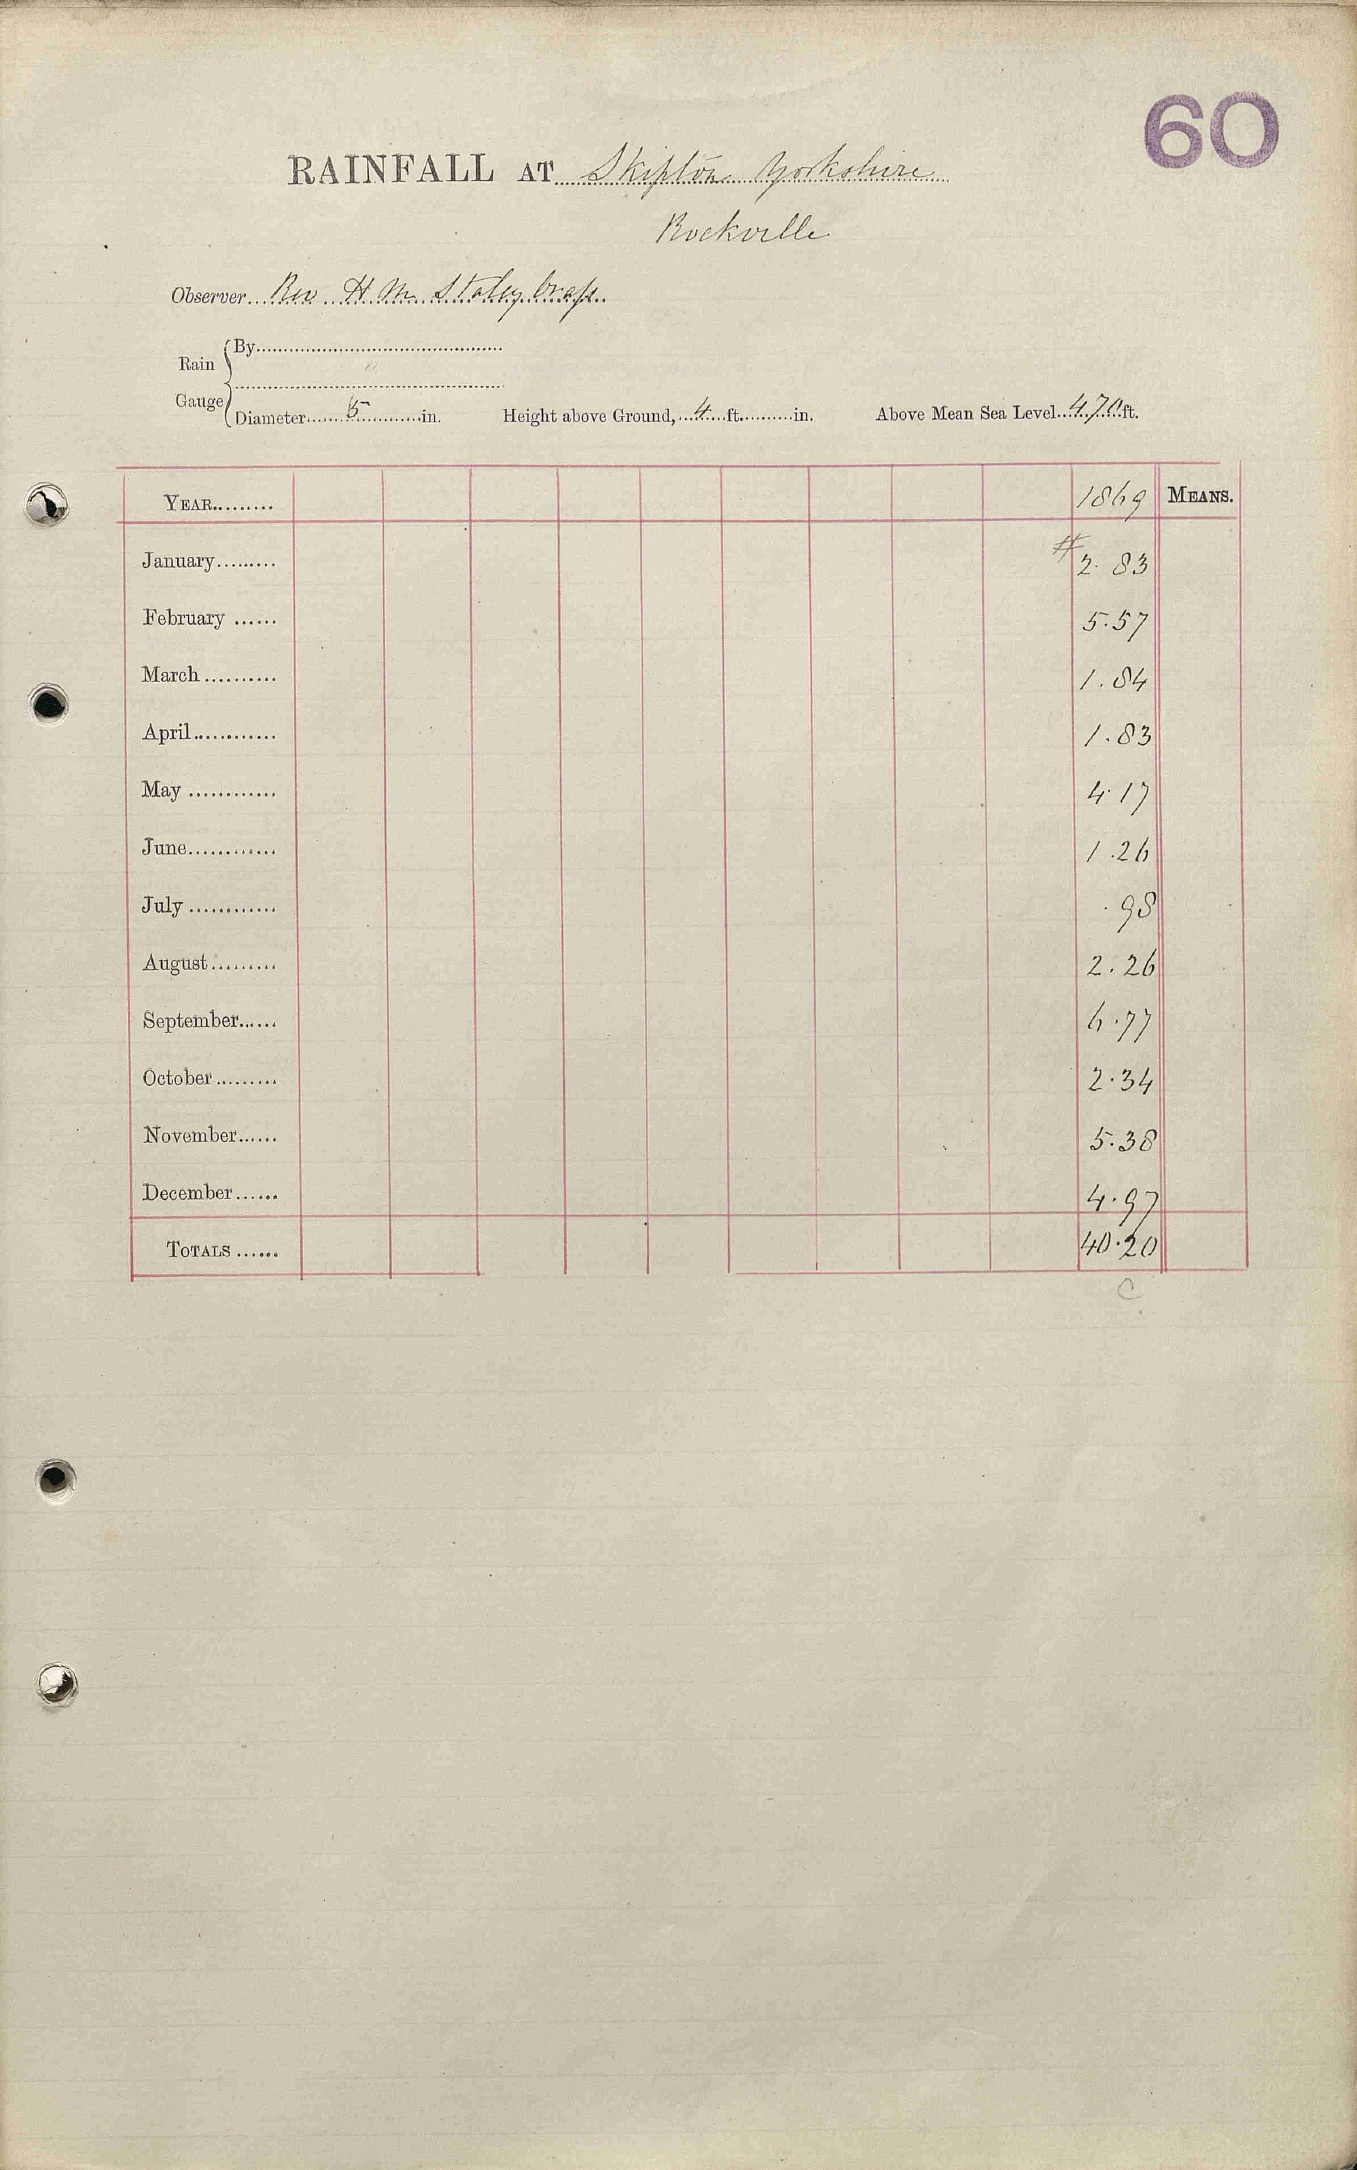 60
RAINFALL AT Skipton Yorkshire
Rockville
Observer Rev H M Staley brass
Rain Gauge
By
Diameter 5 in. Height above Ground, 4 ft. in. Above Mean Sea Level 470 ft.
YEAR 1869 MEANS.
January #2.83
February 5.57
March 1.84
April 1.83
May 4.17
June 1.26
July .98
August 2.26
September 6.77
October 2.34
November 5.38
December 4.97
TOTALS 40.20
C